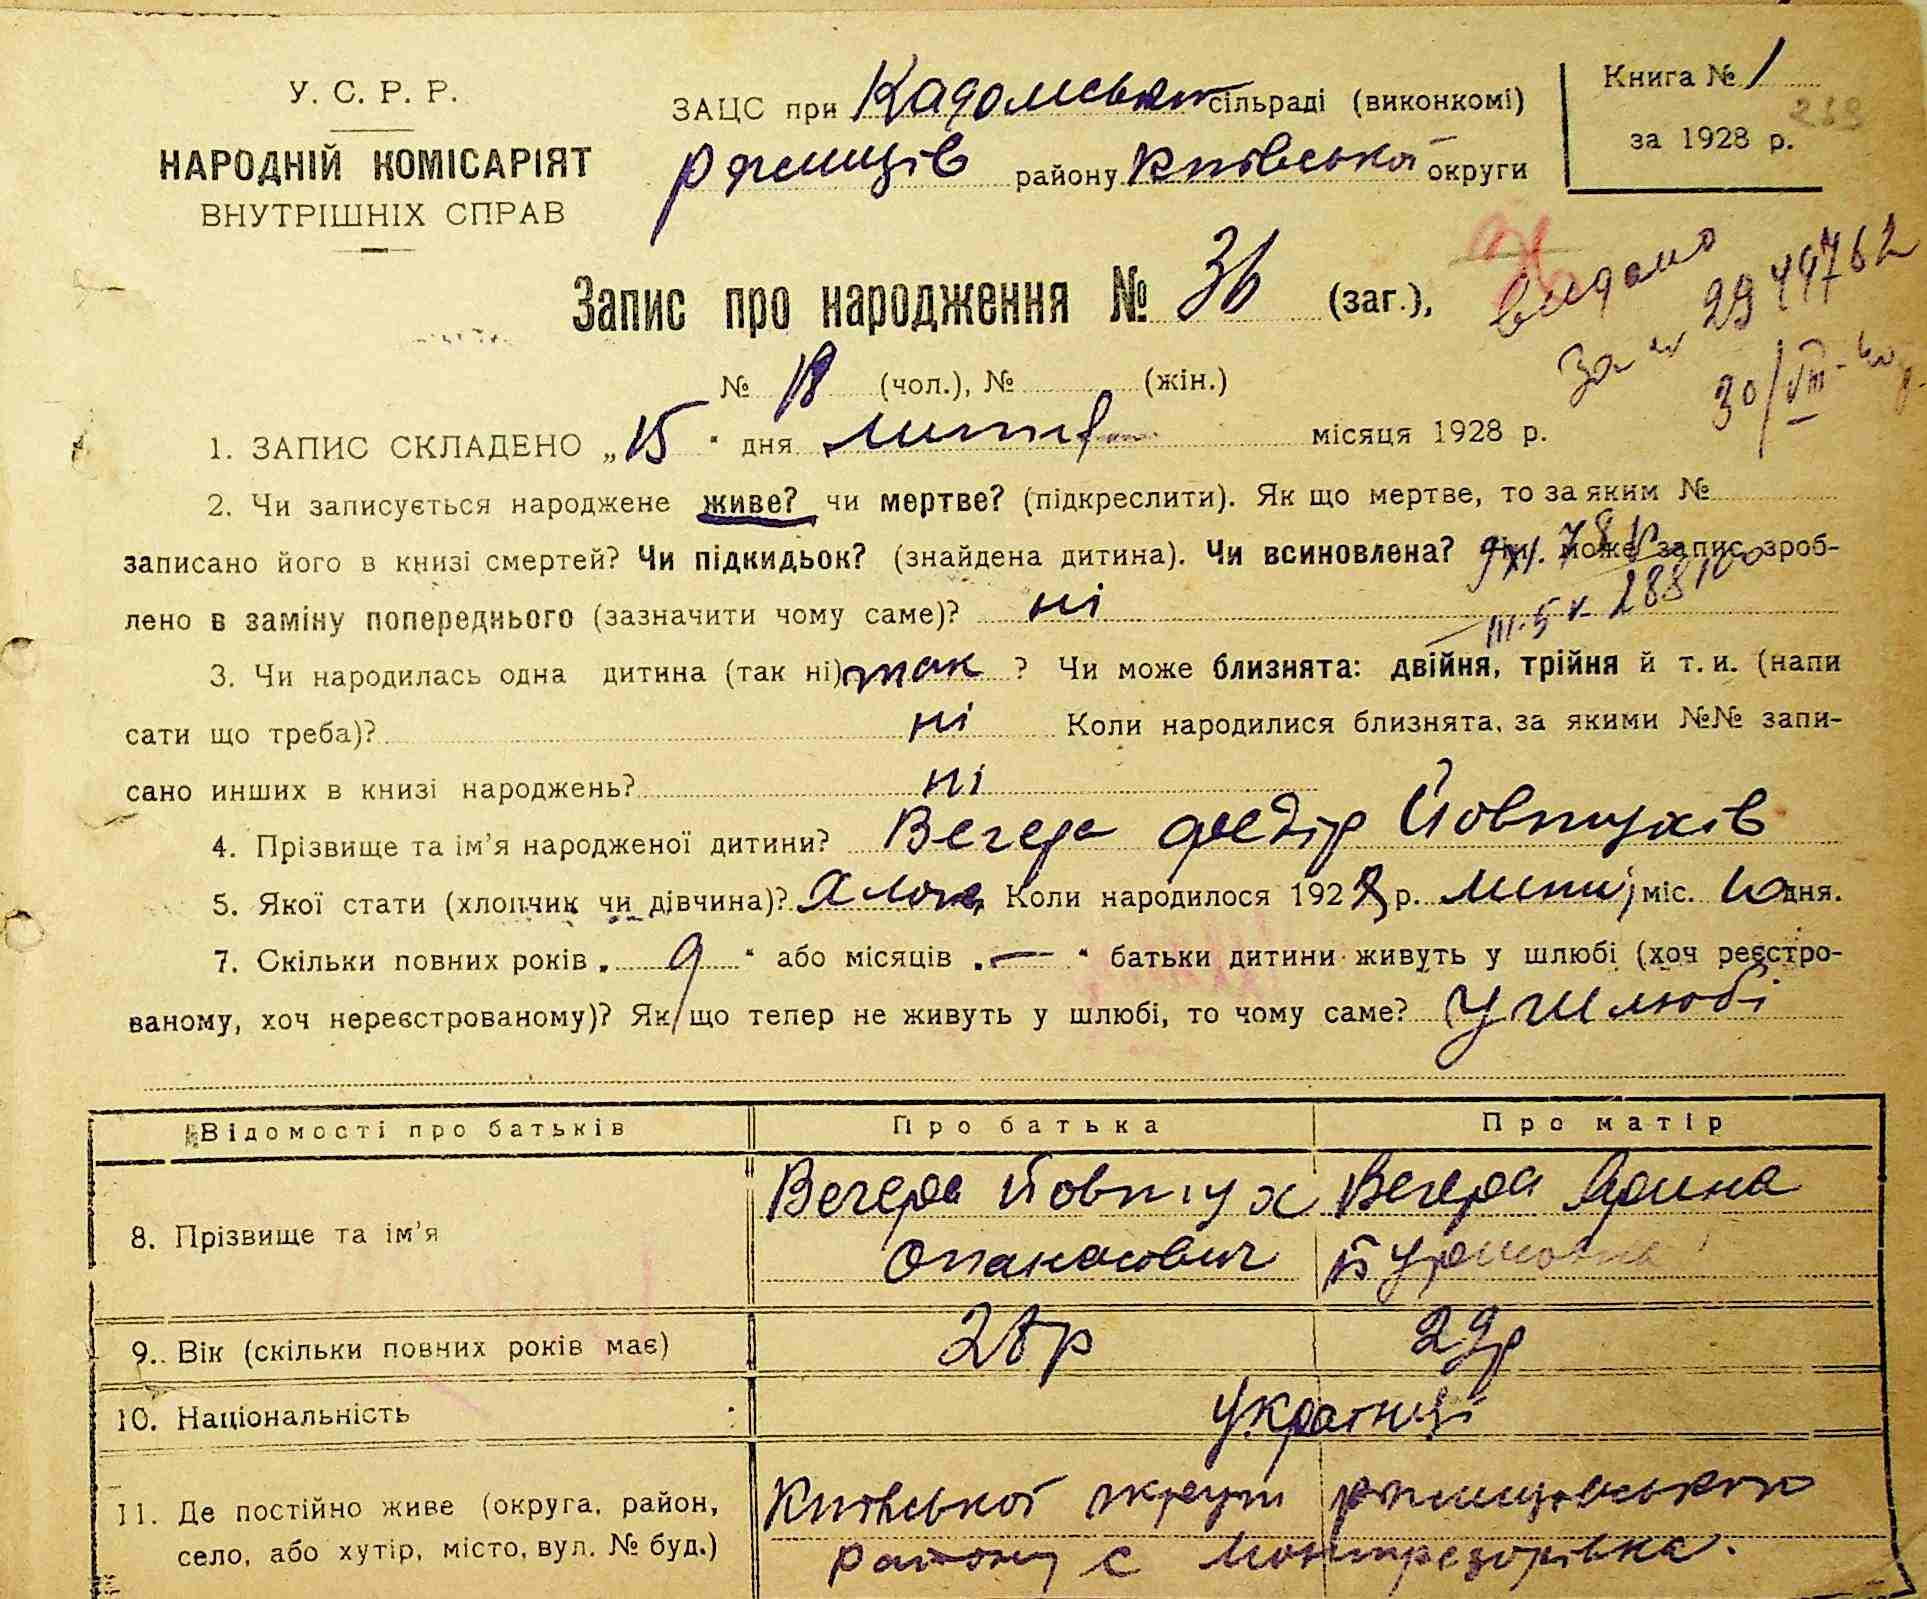 У. С. Р. Р.
НАРОДНІЙ КОМІСАРІЯТ
ВНУТРІШНІХ СПРАВ
ЗАЦС при Кадомській сільраді (виконкомі)
району Київської округи
Книга № 1
за 1928 р.
Запис про народження № 36 (заг.),
№ 18 (чол.), № (жін.)
видано
за № 2949762
30/VIII-40 р.
1. ЗАПИС СКЛАДЕНО „15“ дня місяця 1928 р.
2. Чи записується народжене живе? чи мертве? (підкреслити). Як що мертве, то за яким №
записано його в книзі смертей? Чи підкидьок? (знайдена дитина). Чи всиновлена? Чи може запис зроб-
лено в заміну попереднього (зазначити чому саме)? ні
3. Чи народилась одна дитина (так ні) так ? Чи може близнята: двійня, трійня й т. и. (напи
сати що треба)? ні Коли народилися близнята, за якими №№ запи-
сано инших в книзі народжень? ні
4. Прізвище та ім'я народженої дитини? Вечера Федір Йовтухів
5. Якої стати (хлопчик чи дівчина)? Хлопч. Коли народилося 1928 р. міс. 10 дня.
7. Скільки повних років „ 9 “ або місяців „ — “ батьки дитини живуть у шлюбі (хоч реєстро-
ваному, хоч нереєстрованому)? Як що тепер не живуть у шлюбі, то чому саме? У шлюбі
Відомості про батьків Про батька Про матір
8. Прізвище та ім'я Вечера Йовтух Вечера Ярина
Опанасович
9. Вік (скільки повних років має) 28р 29р
10. Національність Українці
11. Де постійно живе (округа, район, Київської округи
село, або хутір, місто, вул. № буд.) району с Монтрезорівка.